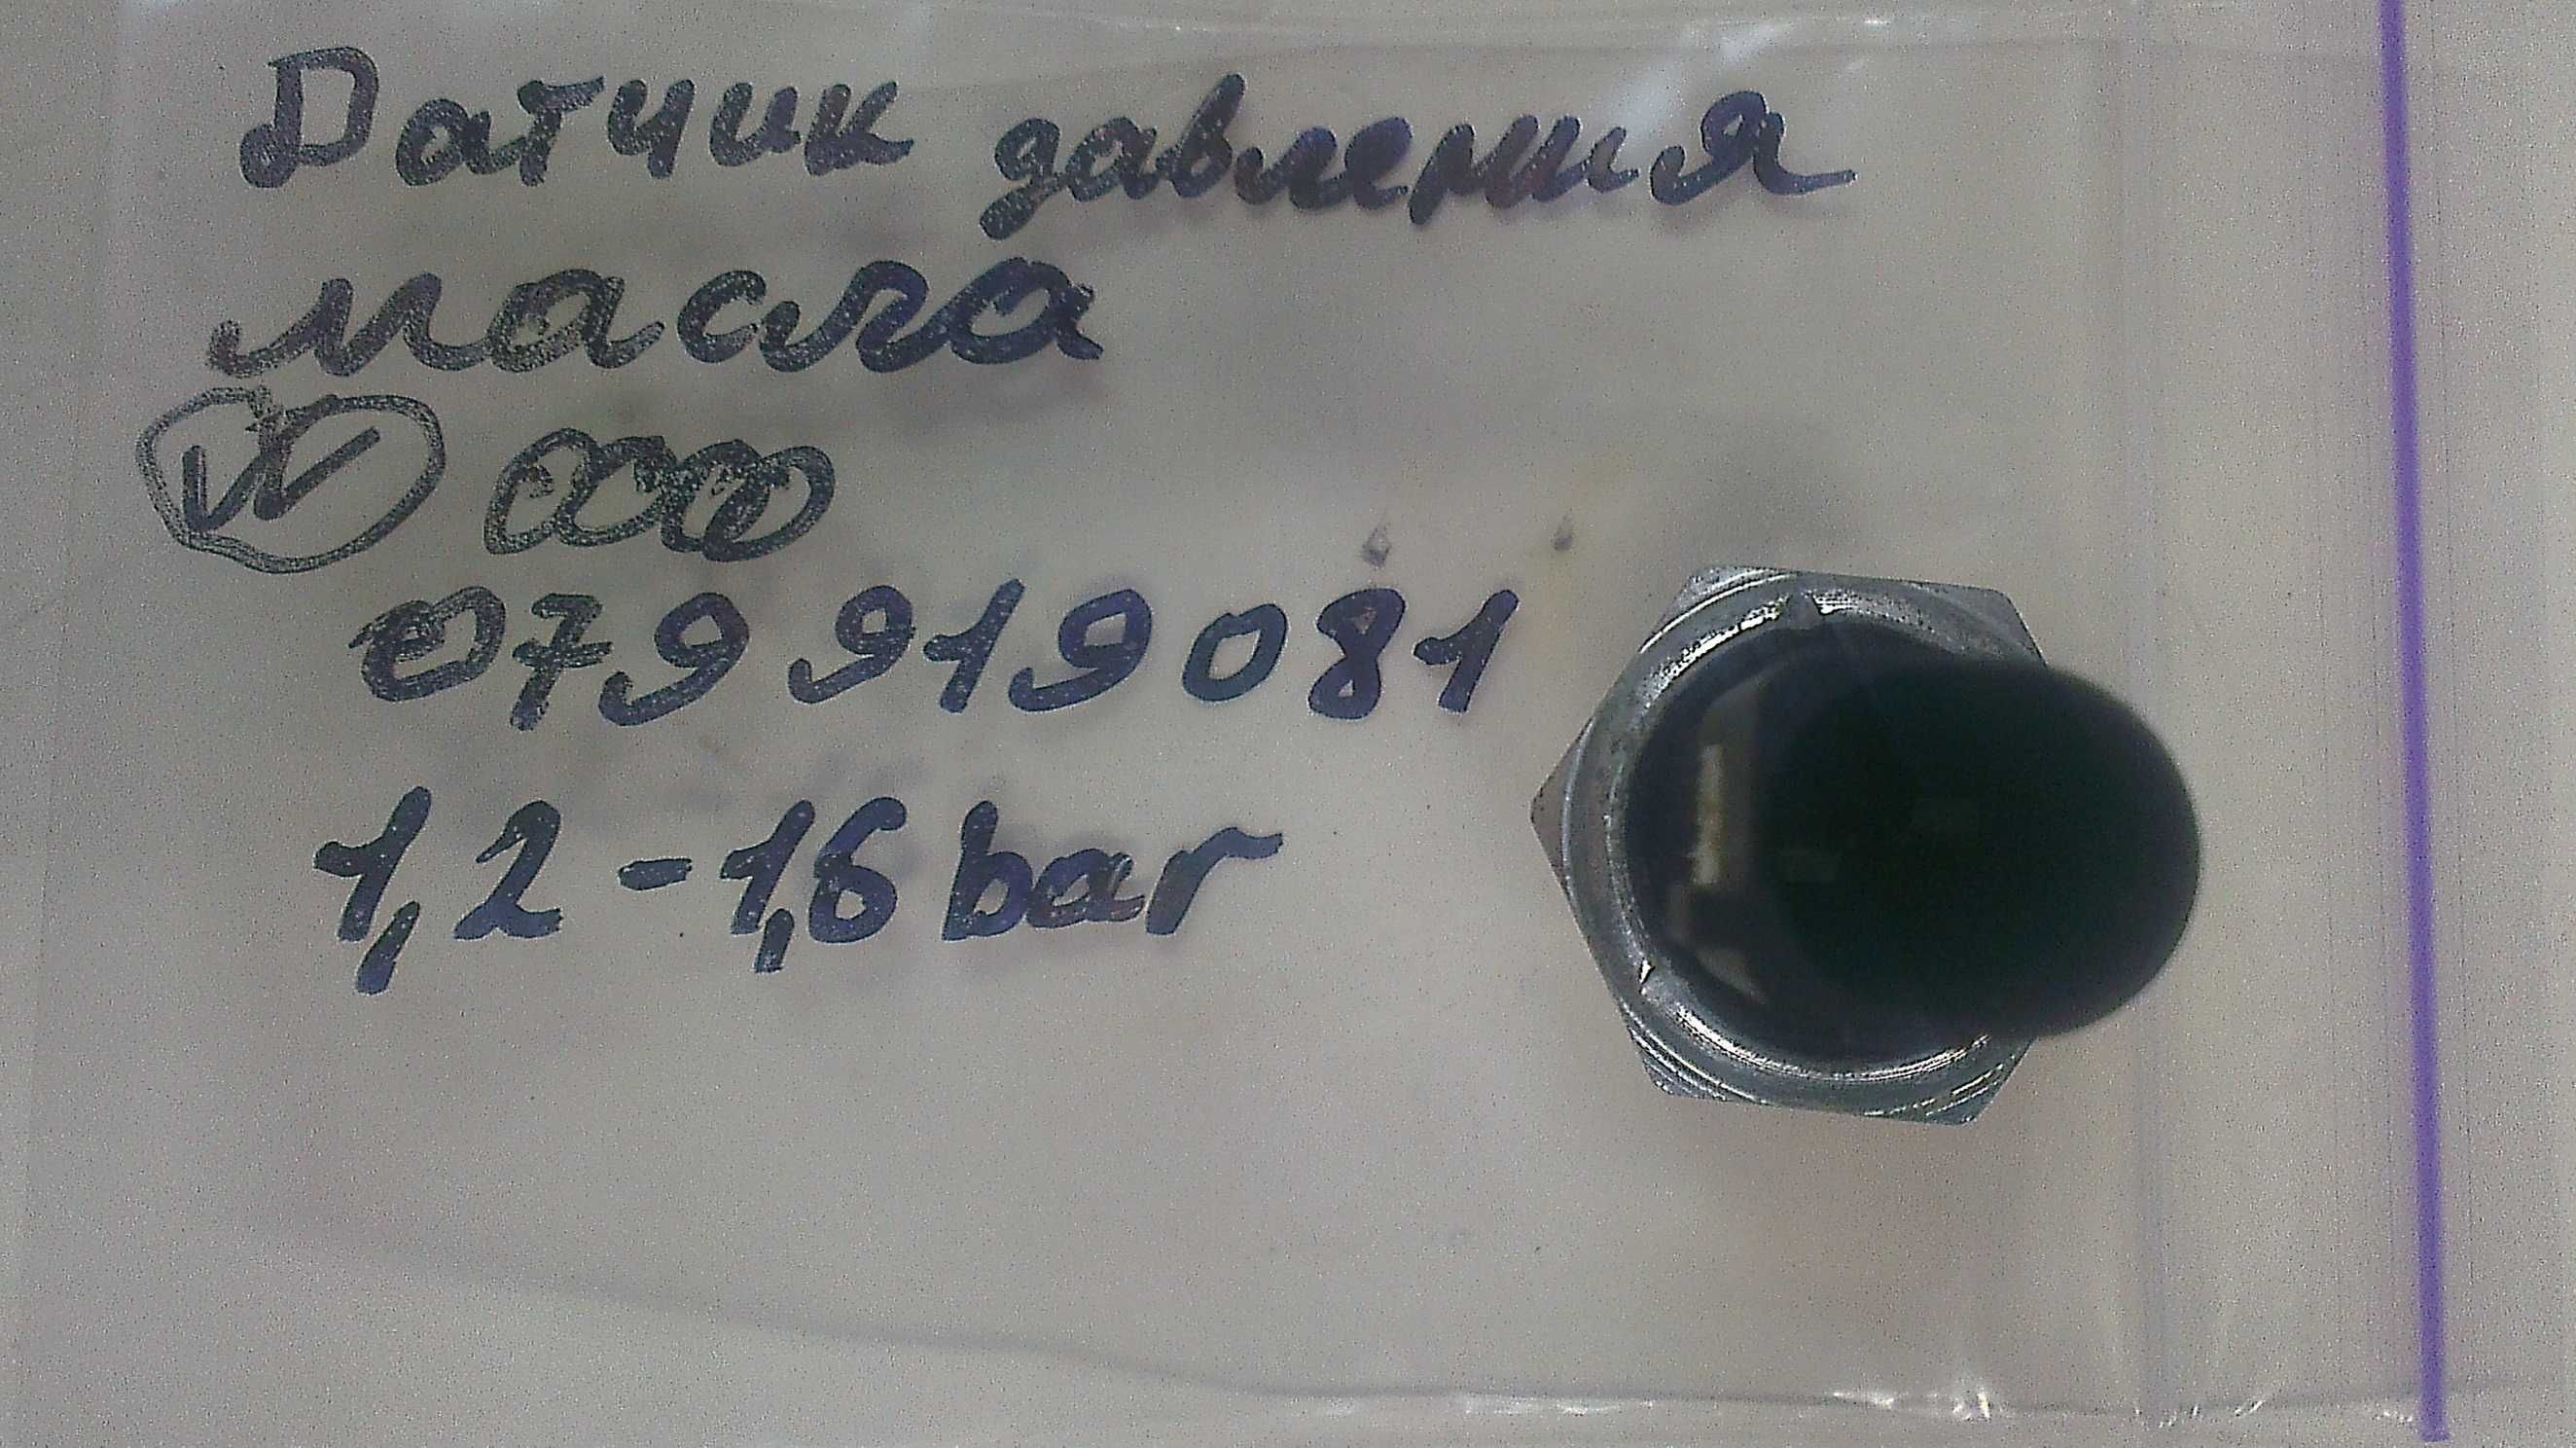 Датчик давления
масла
VW
079919081
1,2-1,6 bar